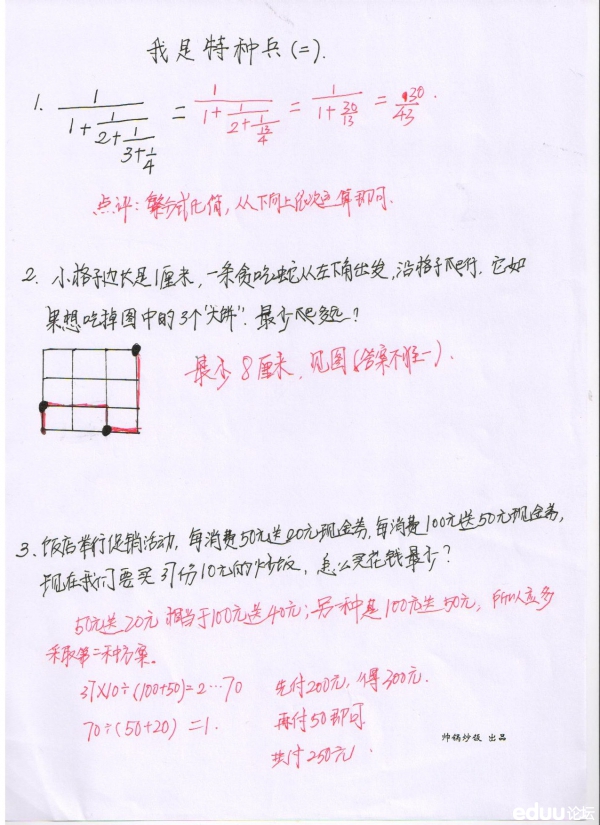 我是特种兵(二).
1. 1/(1+1/(2+1/(3+1/4))) = 1/(1+1/(2+1/(13/4))) = 1/(1+30/13) = 30/43.
点评:繁分式化简,从下向上依次运算即可.
2. 小格子边长是1厘米,一条贪吃蛇从左下角出发,沿格子爬行.它如
果想吃掉图中的3个"大饼".最少爬多远?
最少8厘米,见图(答案不唯一).
3. 饭店举行促销活动,每消费50元送20元现金券,每消费100元送50元现金券,
现在我们要买37份10元的炒饭,怎么买花钱最少?
50元送20元相当于100元送40元;另一种是100元送50元,所以应多
采取第二种方案。
37×10÷(100+50)=2…70 先付200元,得300元.
70÷(50+20)=1. 再付50即可
共付250元.
帅锅炒饭 出品
eduu论坛